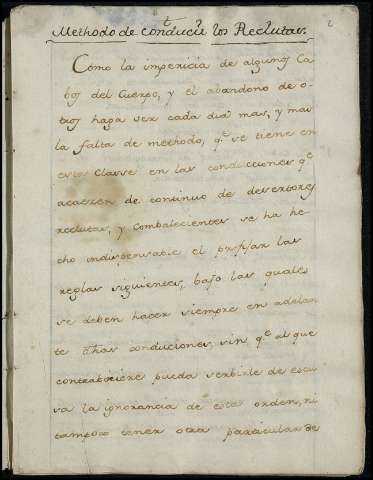 Methodo de conducir los Reclutas.
2
Como la impericia de algunos Ca-
bos del Cuerpo, y el abandono de o-
tros haga ver cada dia mas, y mas
la falta de methodo, qe se tiene en
esta Classe en las conducciones qe
acaecen de continuo de desertores
reclutas, y Combalecientes se ha he-
cho indispensable el prefijar las
reglas siguientes, bajo las quales
se deben hacer siempre en adelan-
te dhas conduciones, sin qe al que
contrabiniere pueda serbirle de escu-
sa la ignorancia de esta orden, ni
tampoco tener otra particular de